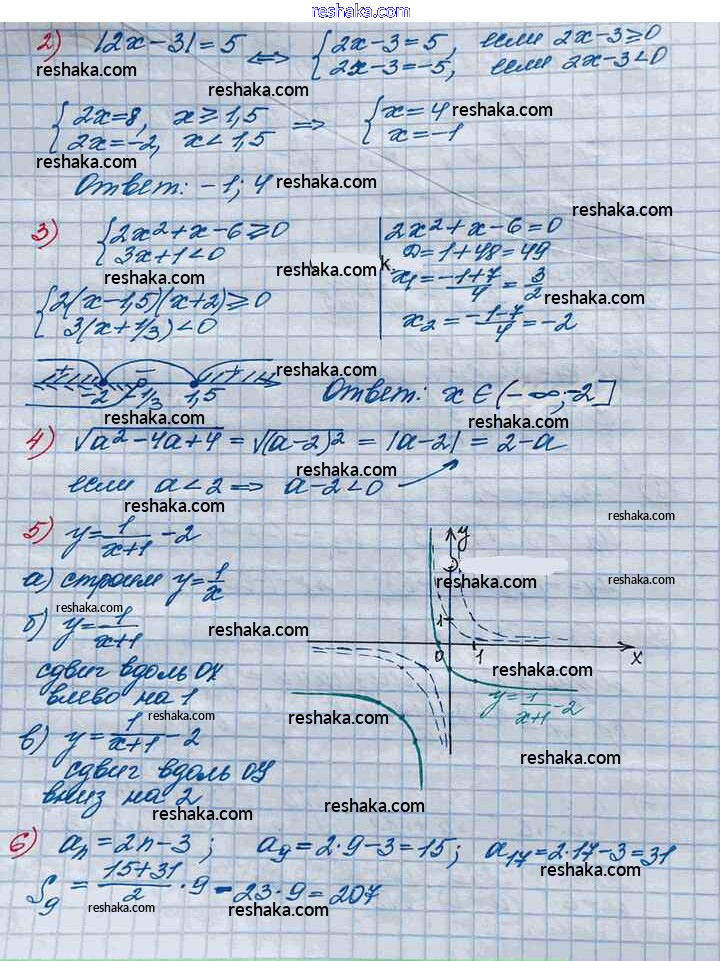 reshaka.com
2) |2x-3|=5 ⟺ {2x-3=5, если 2x-3≥0
{2x-3=-5, если 2x-3<0
reshaka.com reshaka.com
{2x=8, x≥1,5 ⟹ {x=4 reshaka.com
{2x=-2, x<1,5 {x=-1
reshaka.com
Ответ: -1; 4 reshaka.com
reshaka.com
3) {2x²+x-6≥0 2x²+x-6=0
{3x+1<0 D=1+48=49
reshaka.com reshaka.com к.
x₁=(-1+7)/4=3/2 reshaka.com
{2(x-1,5)(x+2)≥0
{3(x+1/3)<0 x₂=(-1-7)/4=-2
+ - +
reshaka.com
-2 -1/3 1,5 Ответ: x∈(-∞;-2]
reshaka.com reshaka.com
4) √(a²-4a+4)=√(a-2)²=|a-2|=2-a
reshaka.com
если a<2 ⟹ a-2<0
reshaka.com reshaka.com
5) y=1/(x+1)-2
y
а) строим y=1/x
reshaka.com reshaka.com
reshaka.com
б) y=1/(x+1) reshaka.com
1
0 1 x
сдвиг вдоль OX reshaka.com
влево на 1
y=1/(x+1)-2
reshaka.com reshaka.com
в) y=1/(x+1)-2
reshaka.com
сдвиг вдоль OY
вниз на 2
reshaka.com reshaka.com
6) aₙ=2n-3; a₉=2·9-3=15; a₁₇=2·17-3=31
reshaka.com
S₉=(15+31)/2·9=23·9=207
reshaka.com reshaka.com